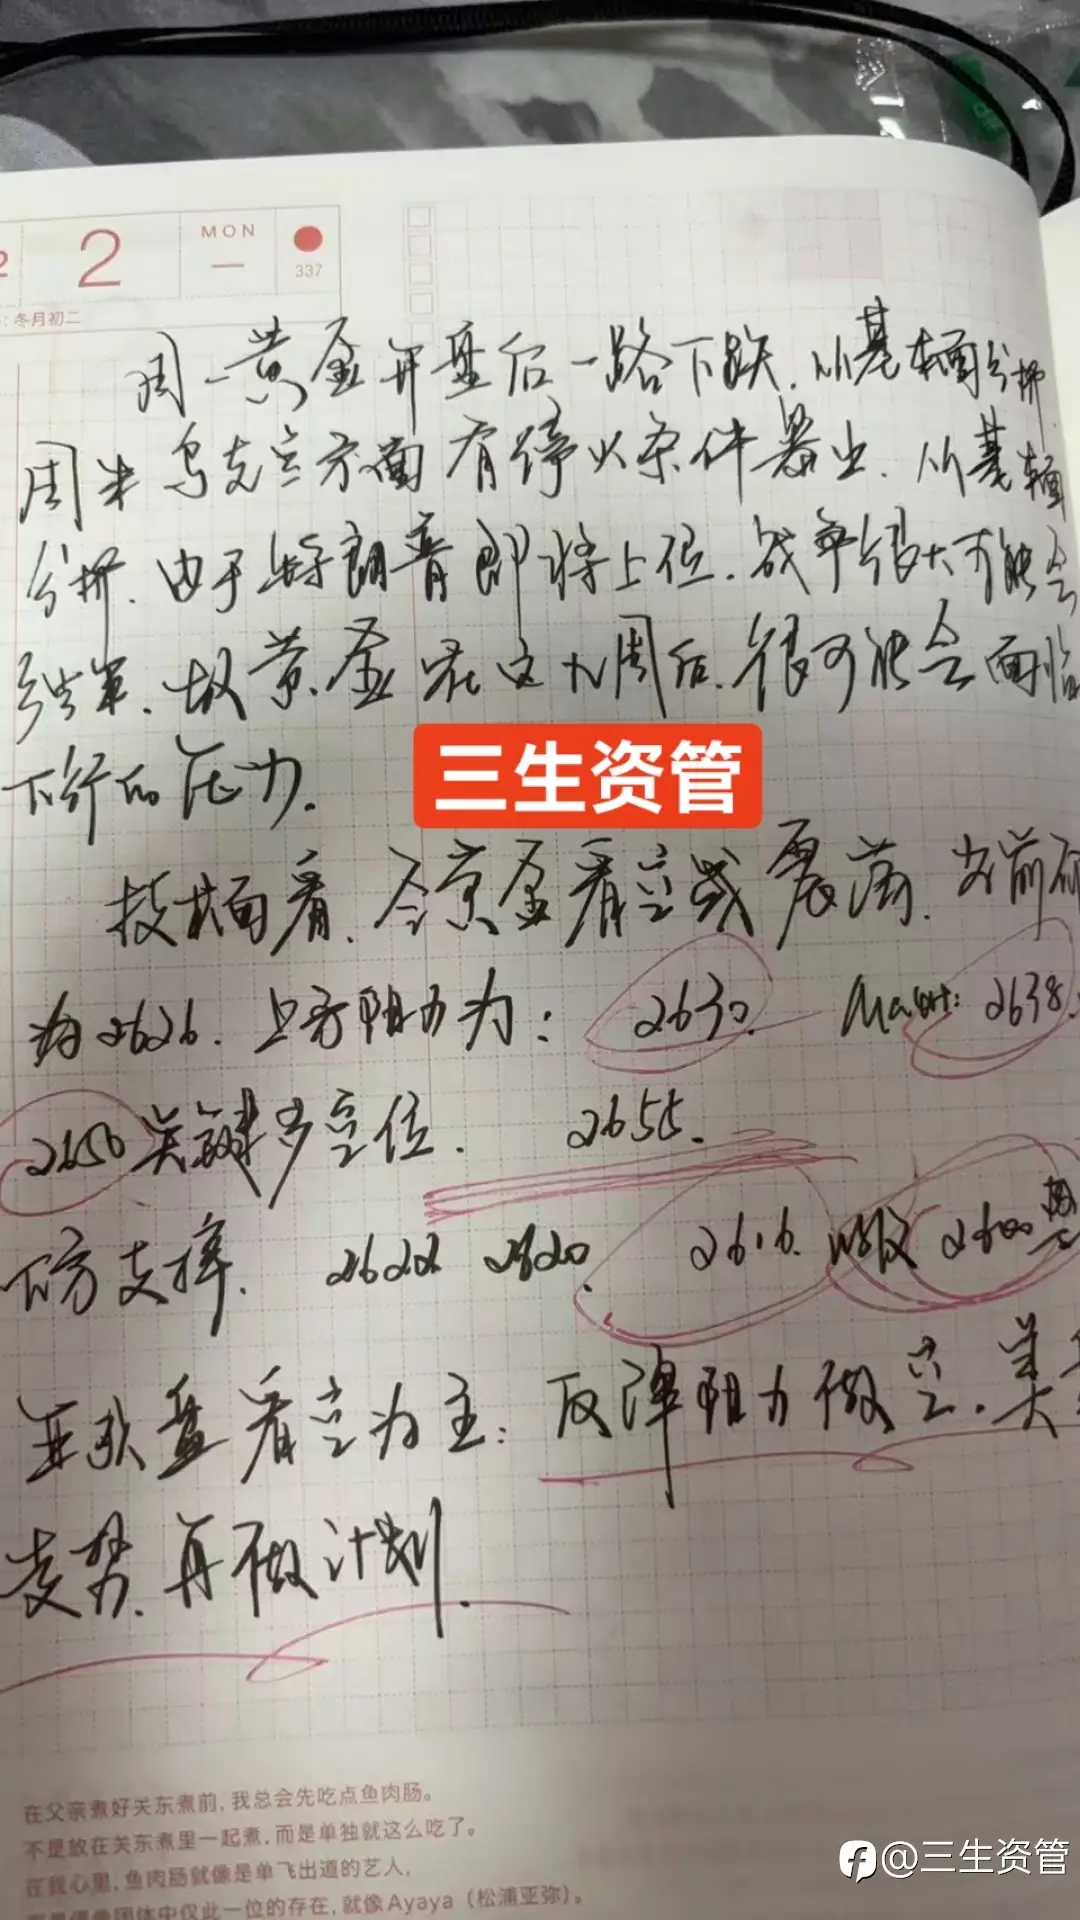 2
2
MON
一
337
冬月初二
周一黄金开盘后一路下跌.从基本面分析
周末乌克兰方面有停火条件暴出.从基本面
分析.由于特朗普即将上位.战争很大可能会
结束.故黄金在这几周后.很可能会面临
下行的压力.
三生资管
技术面看.今黄金看空或震荡.当前
为2626.上方阻力为: 2630. 2638.
2650关键多空位. 2655.
下方支撑. 2622 2620. 2616. 2600
亚欧盘看空为主: 反弹阻力做空.美
走势.再做计划.
在父亲煮好关东煮前,我总会先吃点鱼肉肠。
不是放在关东煮里一起煮,而是单独就这么吃了。
在我心里,鱼肉肠就像是单飞出道的艺人,
偶像团体中仅此一位的存在,就像Ayaya（松浦亚弥）。
@三生资管